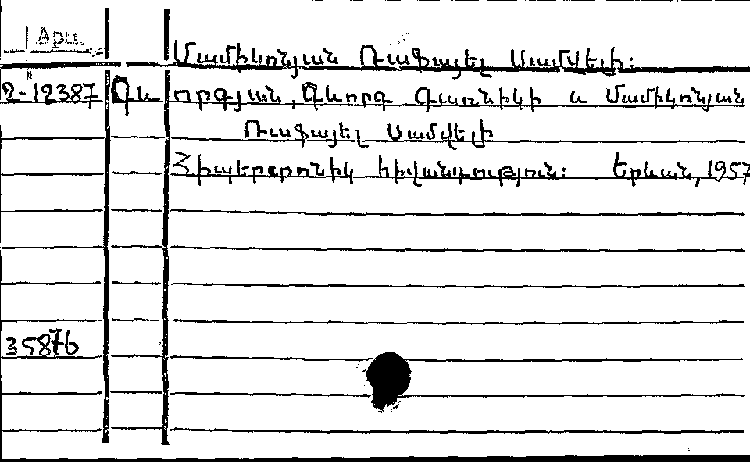 1 Հրա.
Մամիկոնյան Ռաֆայել Սամվելի:
2-12387 Գևորգյան, Գևորգ Գառնիկի և Մամիկոնյան
Ռաֆայել Սամվելի
Հիպերտրոնիկ հիվանդություն: Երևան, 1957
35876